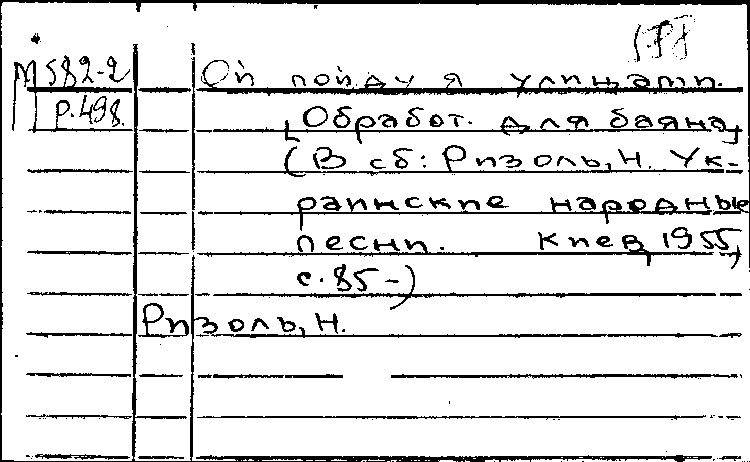 М 582-2 Ой пойду я улицами.
Р.498. [Обработ. для баяна]
(В сб: Ризоль, Н. Ук-
раинские народные
песни. Киев, 1955,
с. 85-)
Ризоль, Н.